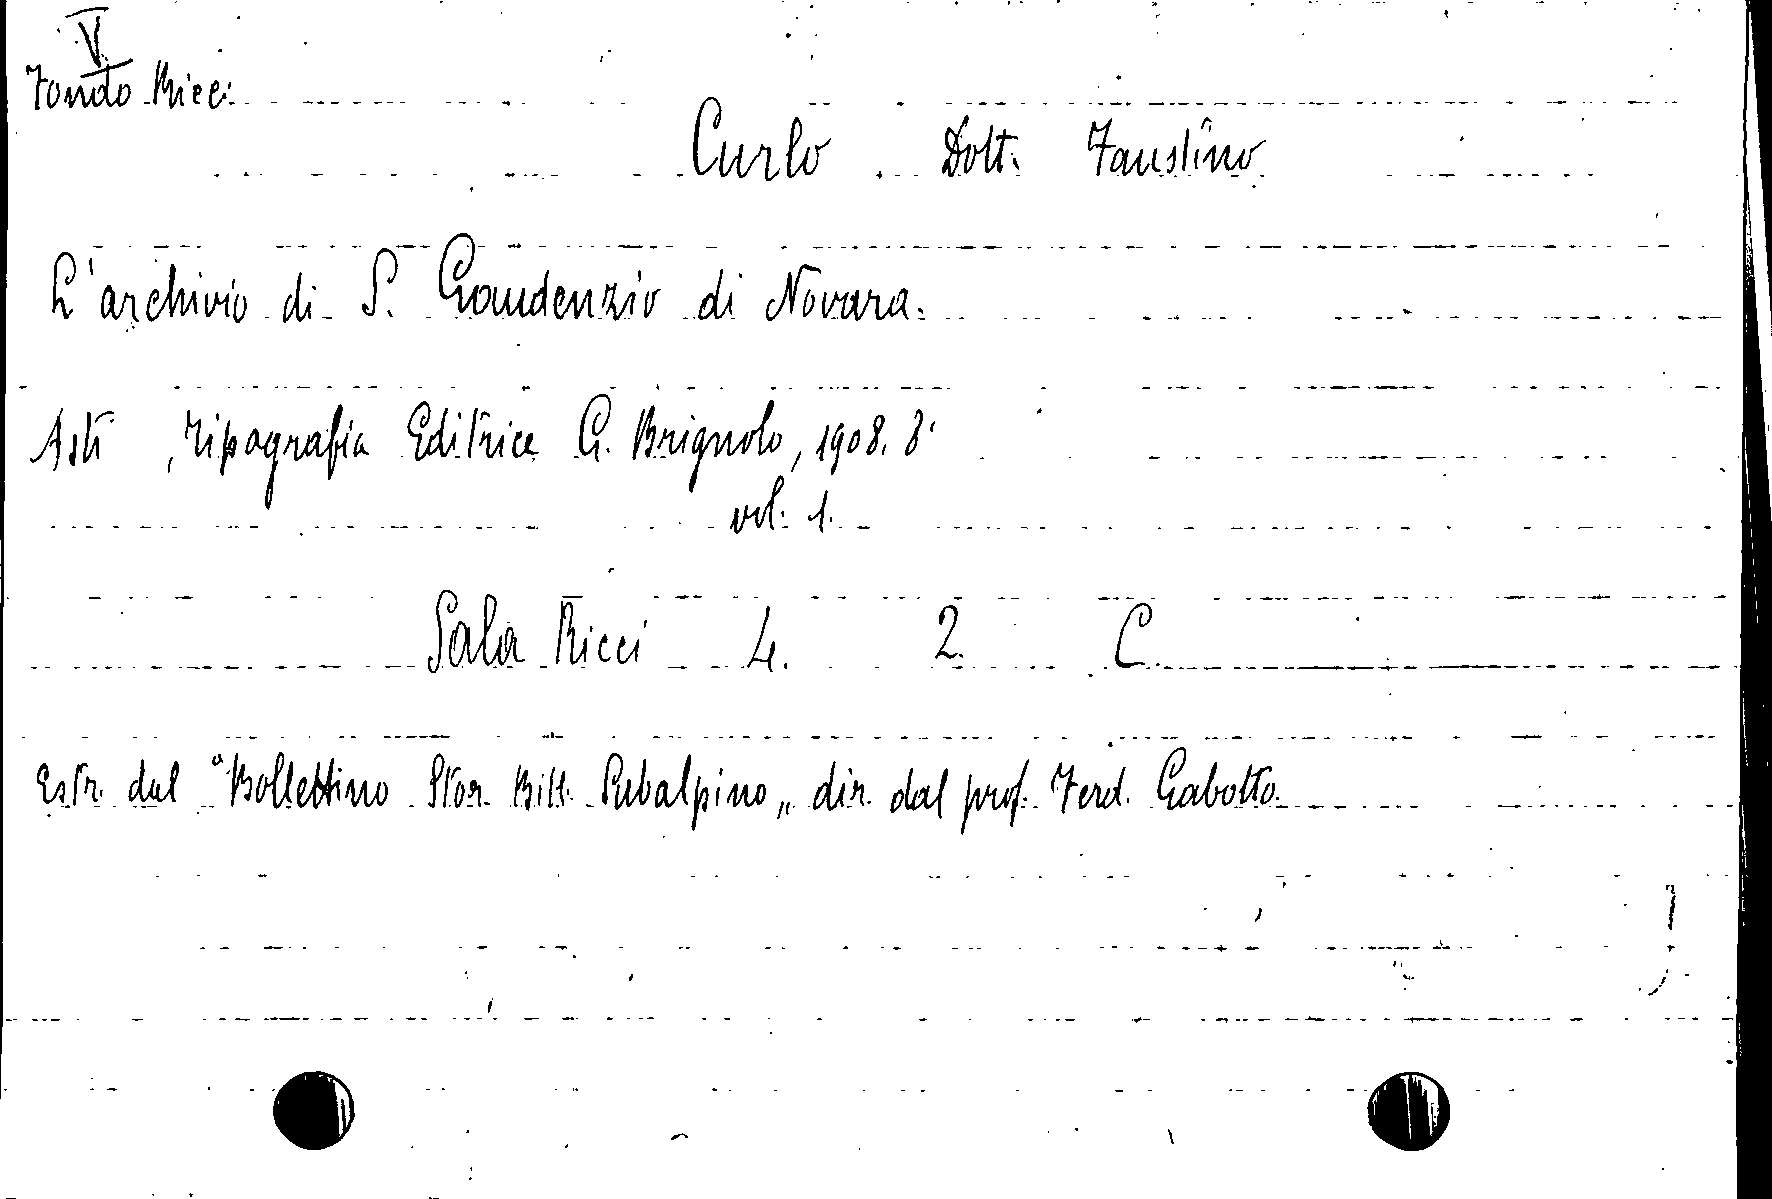 V
Fondo Ricci
Curlo Dott. Faustino
L'archivio di S. Gaudenzio di Novara.
Asti, Tipografia Editrice G. Brignolo, 1908. 8°
vol. 1.
Sala Ricci 4. 2. C.
Estr. dal "Bollettino Stor. Bibl. Subalpino„ dir. dal prof. Ferd. Gabotto.